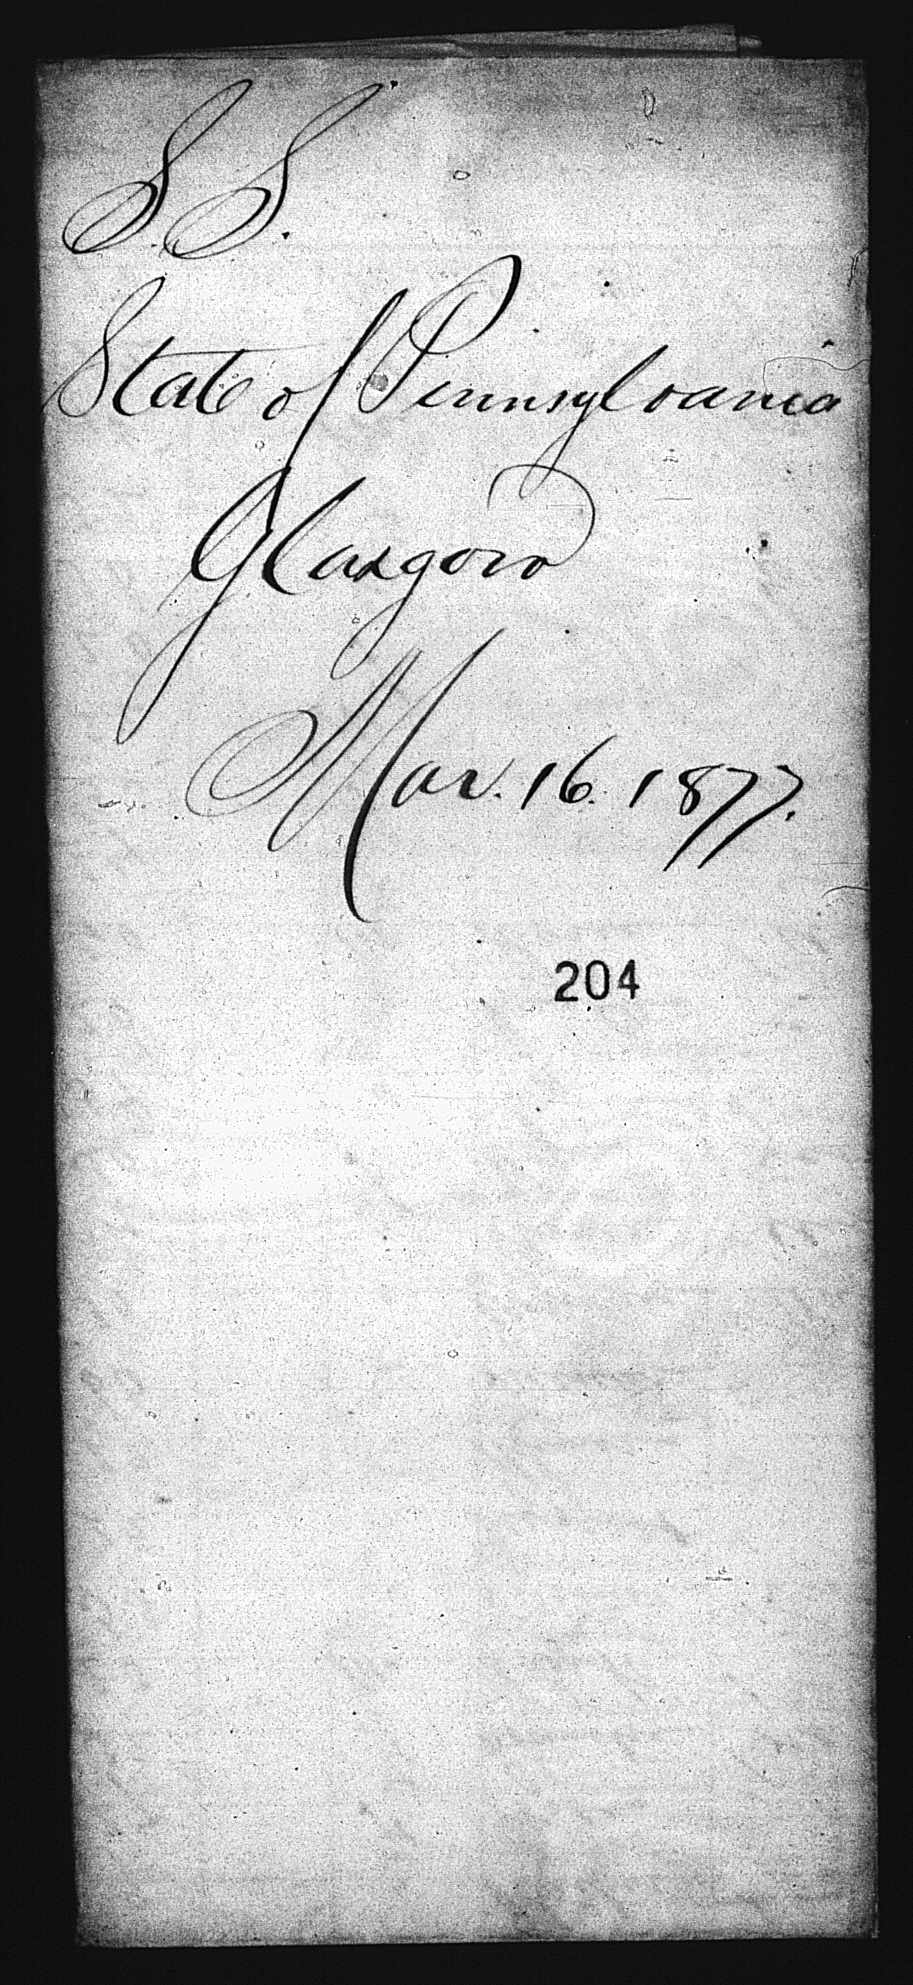 S. S.
State of Pennsylvania
Glasgow
Mar. 16. 1877.
204